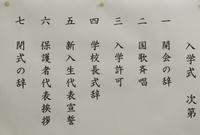 入学式 次第
一 開会の辞
二 国歌斉唱
三 入学許可
四 学校長式辞
五 新入生代表宣誓
六 保護者代表挨拶
七 閉式の辞